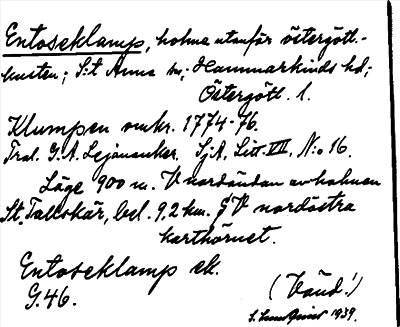 Entoseklamp, holme utanför östergötl.-
kusten; S:t Anna sn; Hammarkinds hd;
Östergötl. l.
Klumpen omkr. 1774-76.
Tral. G. A. Lejonanker. SjA. Lit. VII. N:o 16.
Läge 900 m. V nordändan av holmen
St. Tallskär, bel. 9,2 km. SV nordöstra
karthörnet.
Entoseklamp ek.
G.46. (Vänd!)
1939.